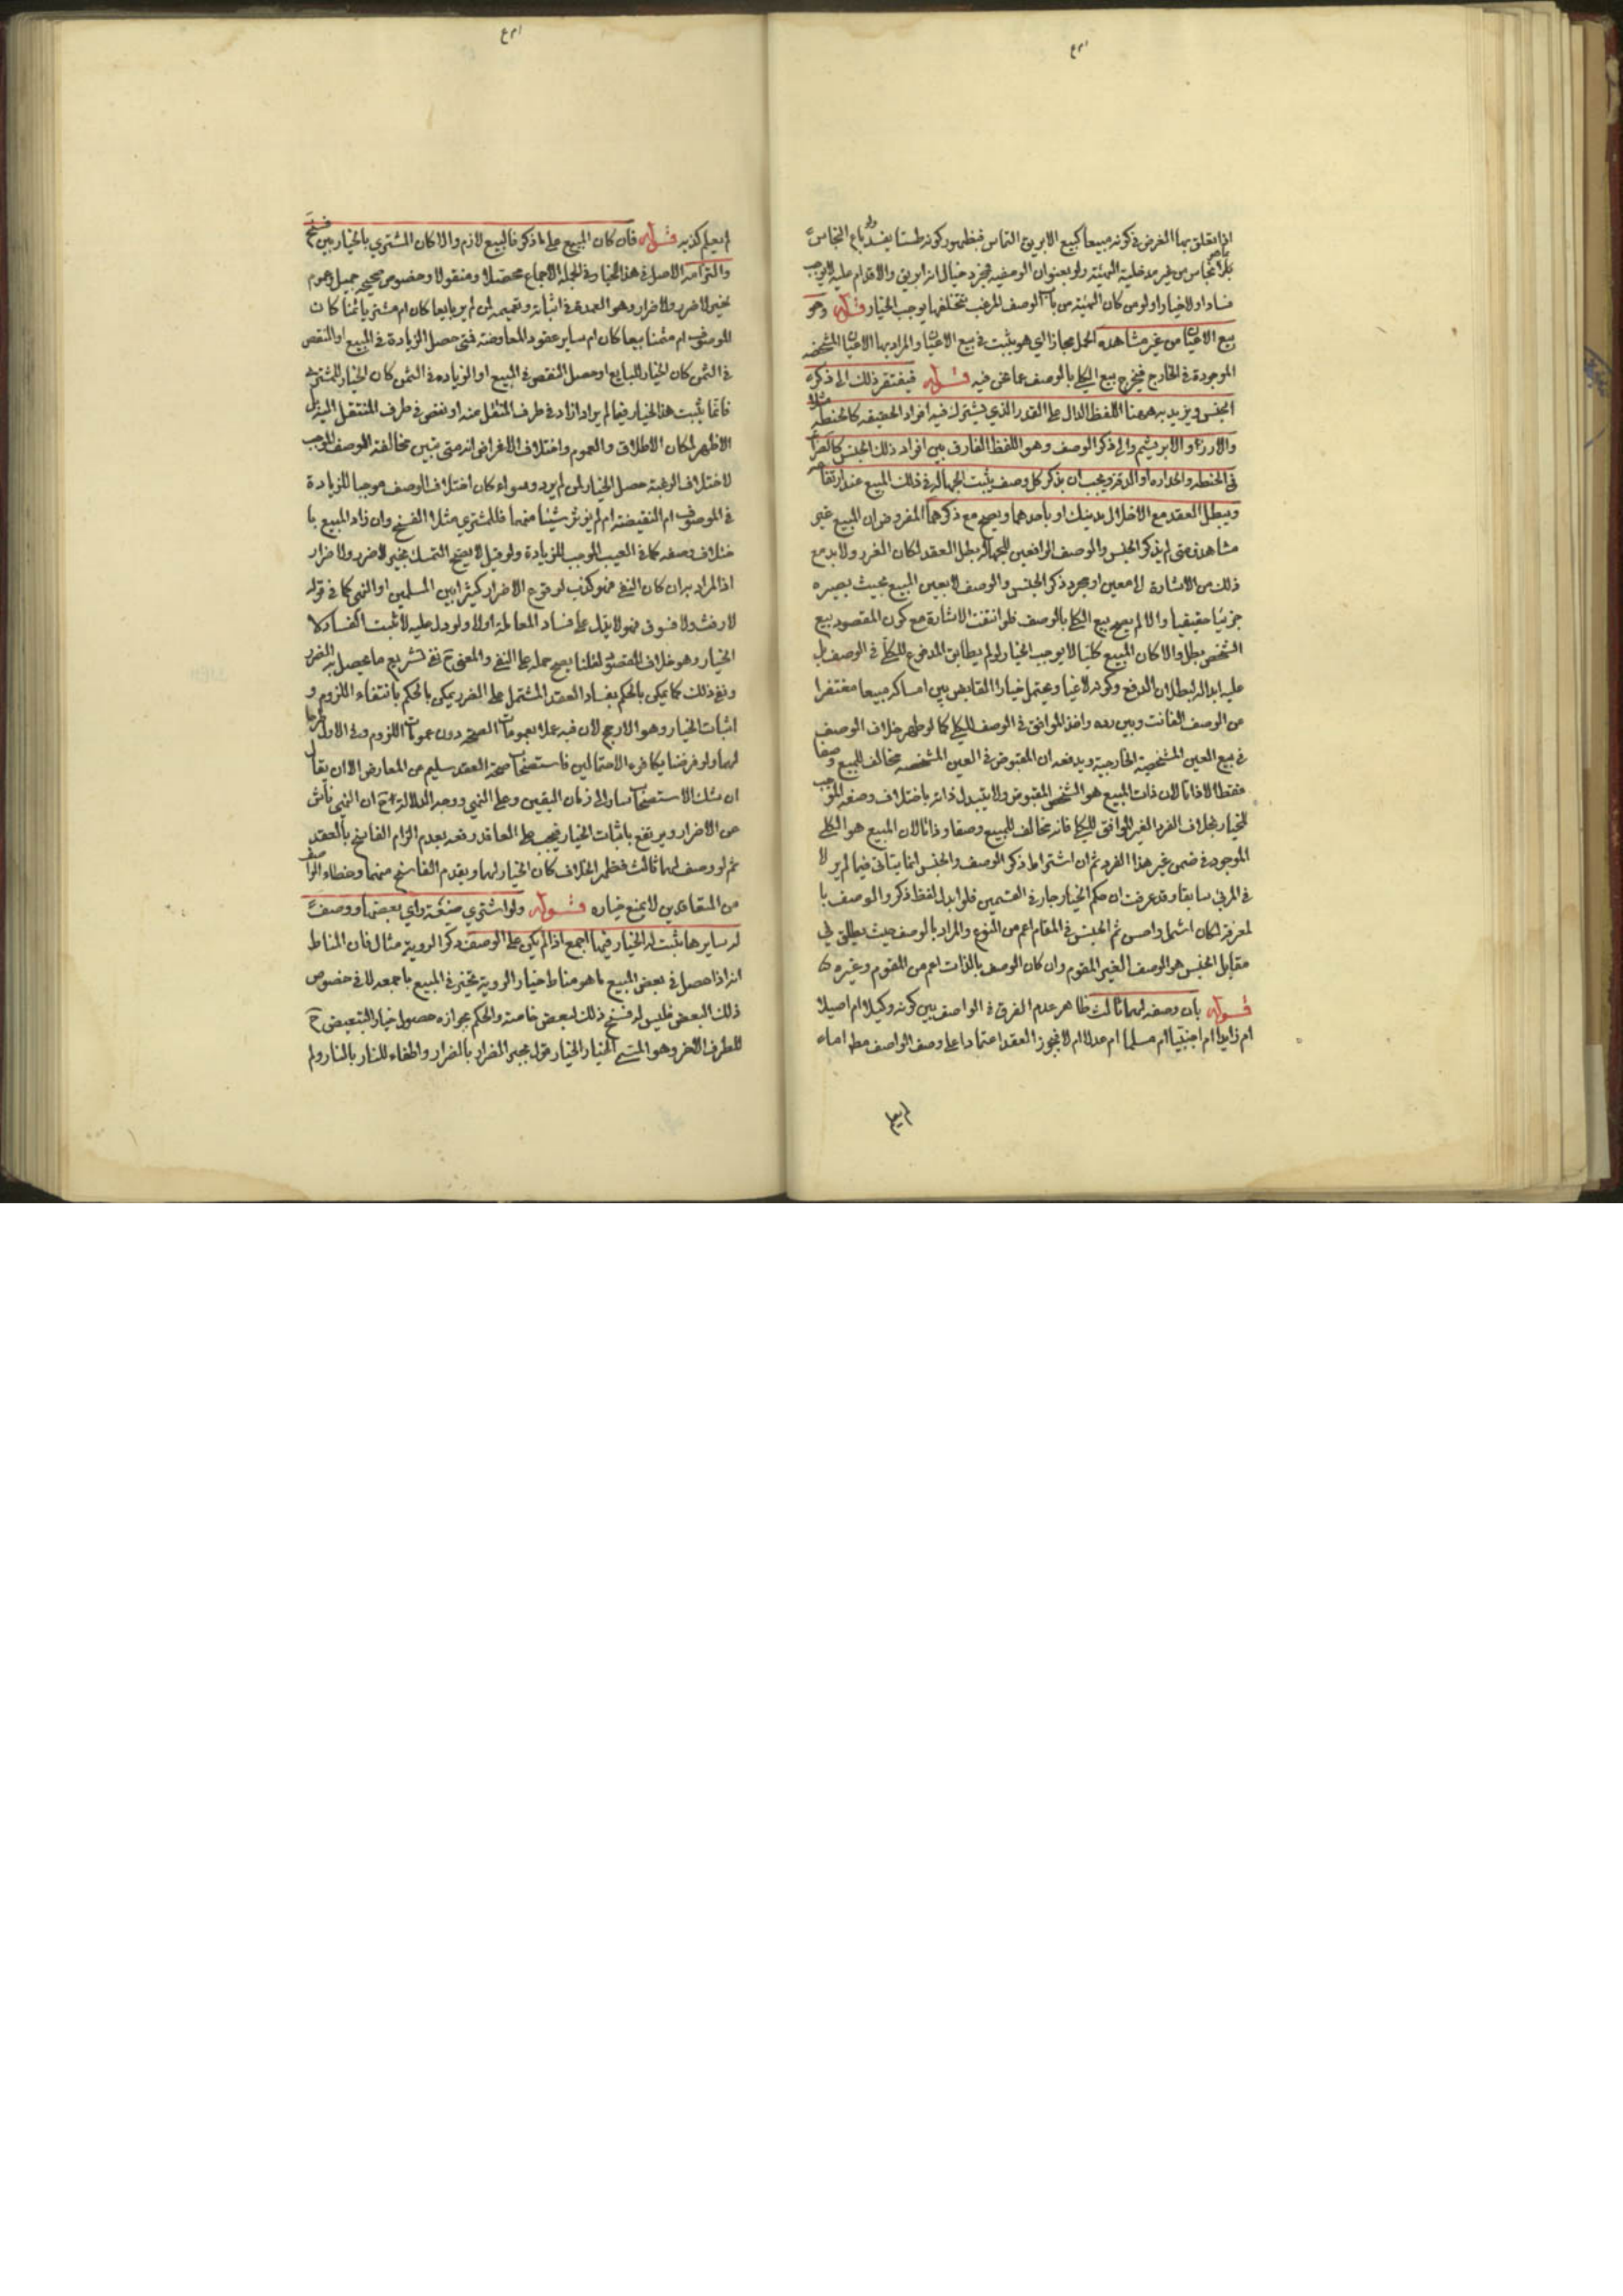 اذا تعلق بها الغرض في كونه مبيعا كبيع الابريق النحاس فيظهر كونه طستا يفسد ولو باع النحاس
من غير مدخلية الهيئة ولو بعنوان الوصفية فمجرد خيال انه ابريق والاقدام عليه لا يوجب
فسادا ولا خيارا ولو من كان الهيئة من باب الوصف المرغب تخلفها يوجب الخيار قوله وهو
بيع الاعيان من غير مشاهدة الحمل مجازا اي هو يثبت في بيع الاعيان والمراد بها الاعيان المشخصة
الموجودة في الخارج فيخرج بيع الكلي بالوصف عما نحن فيه قوله فيفتقر ذلك الى ذكر
الجنس ويزيد به ههنا اللفظ الدال على القدر الذي يشترك فيه افراد الحقيقة كالحنطة مثلا
والارز او الابريشم والى ذكر الوصف وهو اللفظ الفارق بين افراد ذلك الجنس كالصرابة
في الحنطة والحدارة او الدقة ويجب ان يذكر كل وصف يثبت الجهالة في ذلك المبيع عند ارتفاعه
ويبطل العقد مع الاخلال بذينك او باحدهما ويصح مع ذكرهما المفروض ان المبيع غير
مشاهد فمتى لم يذكر الجنس والوصف الرافعين للجهالة بطل العقد لمكان الغرر ولابد مع
ذلك من الاشارة الى معين او مجرد ذكر الجنس والوصف لا يعين المبيع بحيث يصيره
جزئيا حقيقيا والا لم يصح بيع الكلي بالوصف فلو انتفت الاشارة مع كون المقصود بيع
الشخص بطل والا كان المبيع كليا لا يوجب الخيار لو لم يطابق المدفوع للكلي في الوصف بل
عليه ابداله لبطلان الدفع وكونه لاغيا ويحتمل خيار القابض بين امساكه مبيعا مغتفرا
من الوصف الفائت وبين رده واخذ الموافق في الوصف للكلي كما لو ظهر خلاف الوصف
في بيع العين المشخصة الخارجية ويدفعه ان المقبوض في العين المشخصة مخالف للمبيع وصفا
فقط لا ذاتا لان ذات المبيع هو الشخص المقبوض ولا يتبدل ذاته باختلاف وصفه الموجب
للخيار بخلاف الفرد الغير الموافق للكلي فانه مخالف للمبيع وصفا وذاتا لان المبيع هو الكلي
الموجود في ضمن غير هذا الفرد ثم ان اشتراط ذكر الوصف والجنس انما يتأتى فيما لم ير لا
في المرئي سابقا وقد عرفت ان حكم الخيار جار في القسمين فلو ابدل لفظ ذكر والوصف با
لمعرفة لكان اشمل واحسن ثم الجنس في المقام اعم من النوع والمراد بالوصف حيث يطلق في
مقابل الجنس هو الوصف الغير المقوم وان كان الوصف بالذات اعم من المقوم وغيره
قوله بان وصفه لهما ثالث ظاهر عدم الفرق في الواصف بين كونه وكيلا ام اصيلا
ام زايدا ام اجنبيا ام مسلما ام عدلا ام لا فيجوز العقد اعتمادا على وصف الواصف
لم يعلم
لم يعلم كذبه قوله فان كان المبيع على ما ذكر فالبيع لازم والا كان المشتري بالخيار بين فسخ
والتزامه الاصل في هذا الخيار في الجملة الاجماع محصلا ومنقولا وخصوص صحيحة جميل وعموم
خبر لا ضرر ولا ضرار وهو العمدة في اثباته وتعميمه لمن لم ير بايعا كان ام مشتريا ثمنا كان
الموصوف ام مثمنا بيعا كان ام ساير عقود المعاوضة فمتى حصل الزيادة في المبيع او النقص
في الثمن كان الخيار للبايع او حصل النقص في المبيع او الزيادة في الثمن كان الخيار للمشتري
فانما يثبت هذا الخيار فيما لم ير اذا زاد في طرف المنتقل عنه او نقص في طرف المنتقل اليه بل
الاظهر لمكان الاطلاق والعموم واختلاف الاغراض انه متى تبين مخالفته للوصف الموجب
لاختلاف الرغبة حصل الخيار لمن لم يرد وسواء كان اختلاف الوصف موجبا للزيادة
في الموصوف ام النقيضة ام لم يؤثر شيئا منهما فللمشتري مثلا الفسخ وان زاد المبيع با
ختلاف وصفه كما في العيب الموجب للزيادة ولو قيل لا يصح التمسك بخبر لا ضرر ولا ضرار
اذ المراد به ان كان النفي فهو كذب لوقوع الاضرار كثيرا بين المسلمين او النهي كما في قوله
لا رفث ولا فسوق فهو لا يدل على فساد المعاملة اولا ولو دل عليه لاثبت الفساد لا
الخيار وهو خلاف المقصود لقلنا يصح حمله على النفي والمعنى ح نفي تشريع ما يحصل به الضرر
ونفي ذلك كما يمكن بالحكم بفساد العقد المشتمل على الضرر يمكن بالحكم بانتفاء اللزوم و
اثبات الخيار وهو الارجح لان فيه عملا بعمومات الصحة دون عمومات اللزوم وفي الاول طرحا
لهما ولو فرضنا تكافؤ الاحتمالين فاستصحاب صحة العقد سليم من المعارض الا ان يقال
ان شك الاستصحاب سار الى زمان اليقين وعلى النهي ووجه الدلالة ح ان النهي ناش
من الاضرار ويرتفع باثبات الخيار فيجب على العاقد رفعه بعدم الزام الفاسخ بالعقد
ثم لو وصف لهما ثالث فظهر الخلاف كان الخيار لهما ويقدم الفاسخ منهما وخطاء الواصف
من المتعاقدين لا يمنع خياره قوله ولو اشترى ضيعة راى بعضها ووصف
له سايرها يثبت له الخيار فيها اجمع اذا لم يكن على الوصف ذكر الروية مثال فان المناط
انه اذا حصل في بعض المبيع ما هو مناط خيار الروية تخير في المبيع باجمعه لا في خصوص
ذلك البعض فليس له فسخ ذلك البعض خاصة والحكم بجوازه حصول خيار التبعيض ح
للطرف الاخر وهو المسمى بخيار الخيار قول بجبر الضرار بالضرار واطفاء للنار بالنار ولم